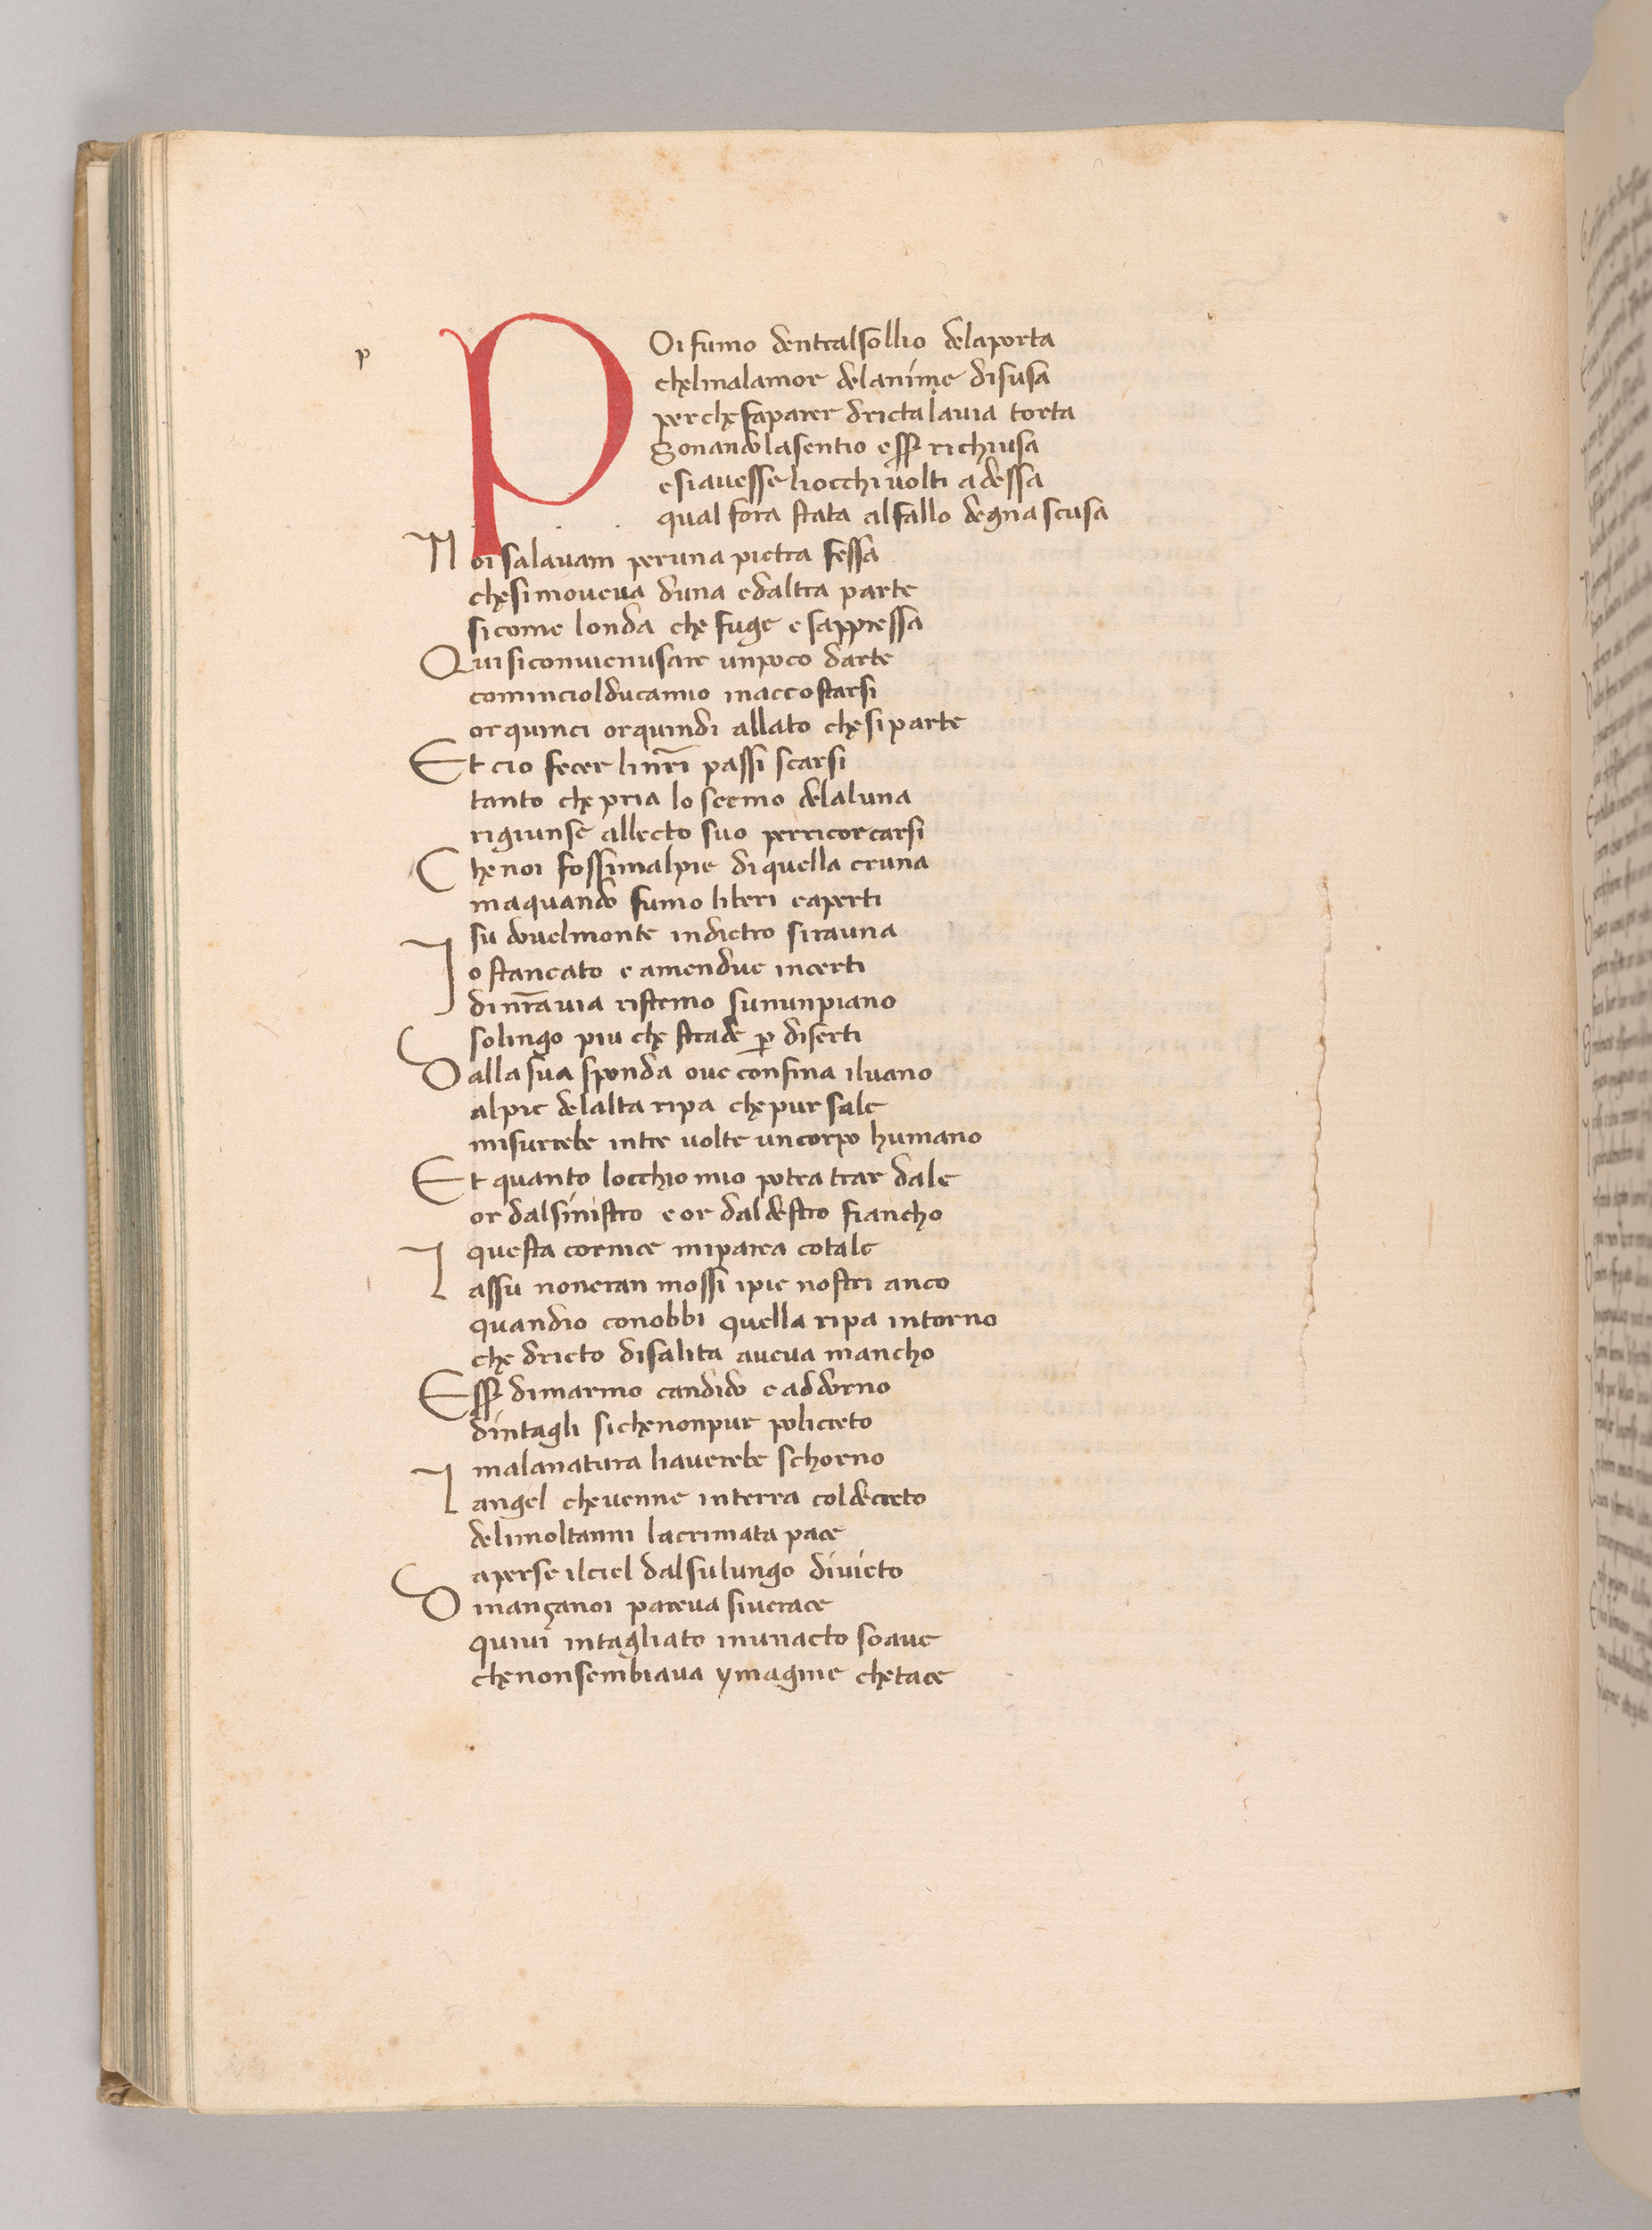 p
POi fumo dentralsollio delaporta
chelmalamor delanime disusa
perche faparer drictalauia torta
Sonandolasentio essere richiusa
esiauesse liocchiuolti adessa
qual fora stata alfallo degna scusa
Noi salauam peruna pietra fessa
chesimoueua duna edaltra parte
sicome londa che fuge esappressa
Quisiconuienusare unpoco darte
cominciolducamio inaccostarsi
orquinci orquindi allato chesiparte
Et cio fecer linr̃i passi scarsi
tanto che pria lo scemo delaluna
rigiunse allecto suo perricorcarsi
Che noi fossimalpie diquella cruna
maquando fumo liberi eaperti
su douelmonte indietro sirauna
Io stancato e amendue incerti
dinr̃auia ristemo sununpiano
solingo piu che strade ꝑ diserti
Dallasua sponda oue confina iluano
alpie delalta ripa chepur sale
misurrebe intre uolte uncorpo humano
Et quanto locchiomio potea trar dale
or dalsinistro e or daldestro fiancho
questa cornice miparea cotale
Lassu noneran mossi ipie nostri anco
quandio conobbi quella ripa intorno
che dricto disalita aueua mancho
Essere dimarmo candido e addorno
dintagli sichenonpur policreto
malanatura liauerebe schorno
Langel cheuenne interra coldecreto
delimoltanni lacrimata pace
aperse ilciel dalsulungo diuieto
Dinançanoi pareua siuerace
quiui intagliato inunacto soaue
chenonsembiaua ymagine chetace